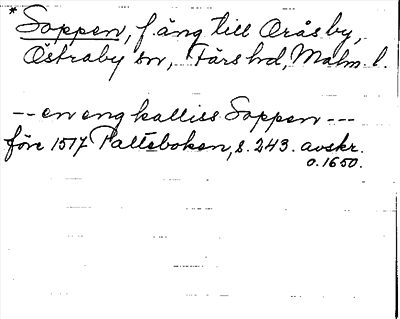 *Soppen, f äng till Oråsby,
Östraby sn, Färs hd, Malm. l.
-- en eng kalliss Soppen ---
före 1517 Palteboken, s. 243. avskr.
o. 1650.